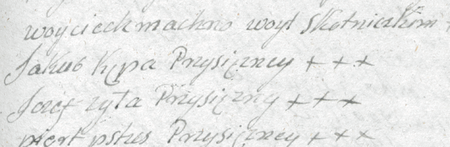 woyciech machno woyt Skotniczkim
Jakub Kępa Przysięzney + + +
Jozef zyła Przysięzny + + +
piotr pstus Przysięzney + + +